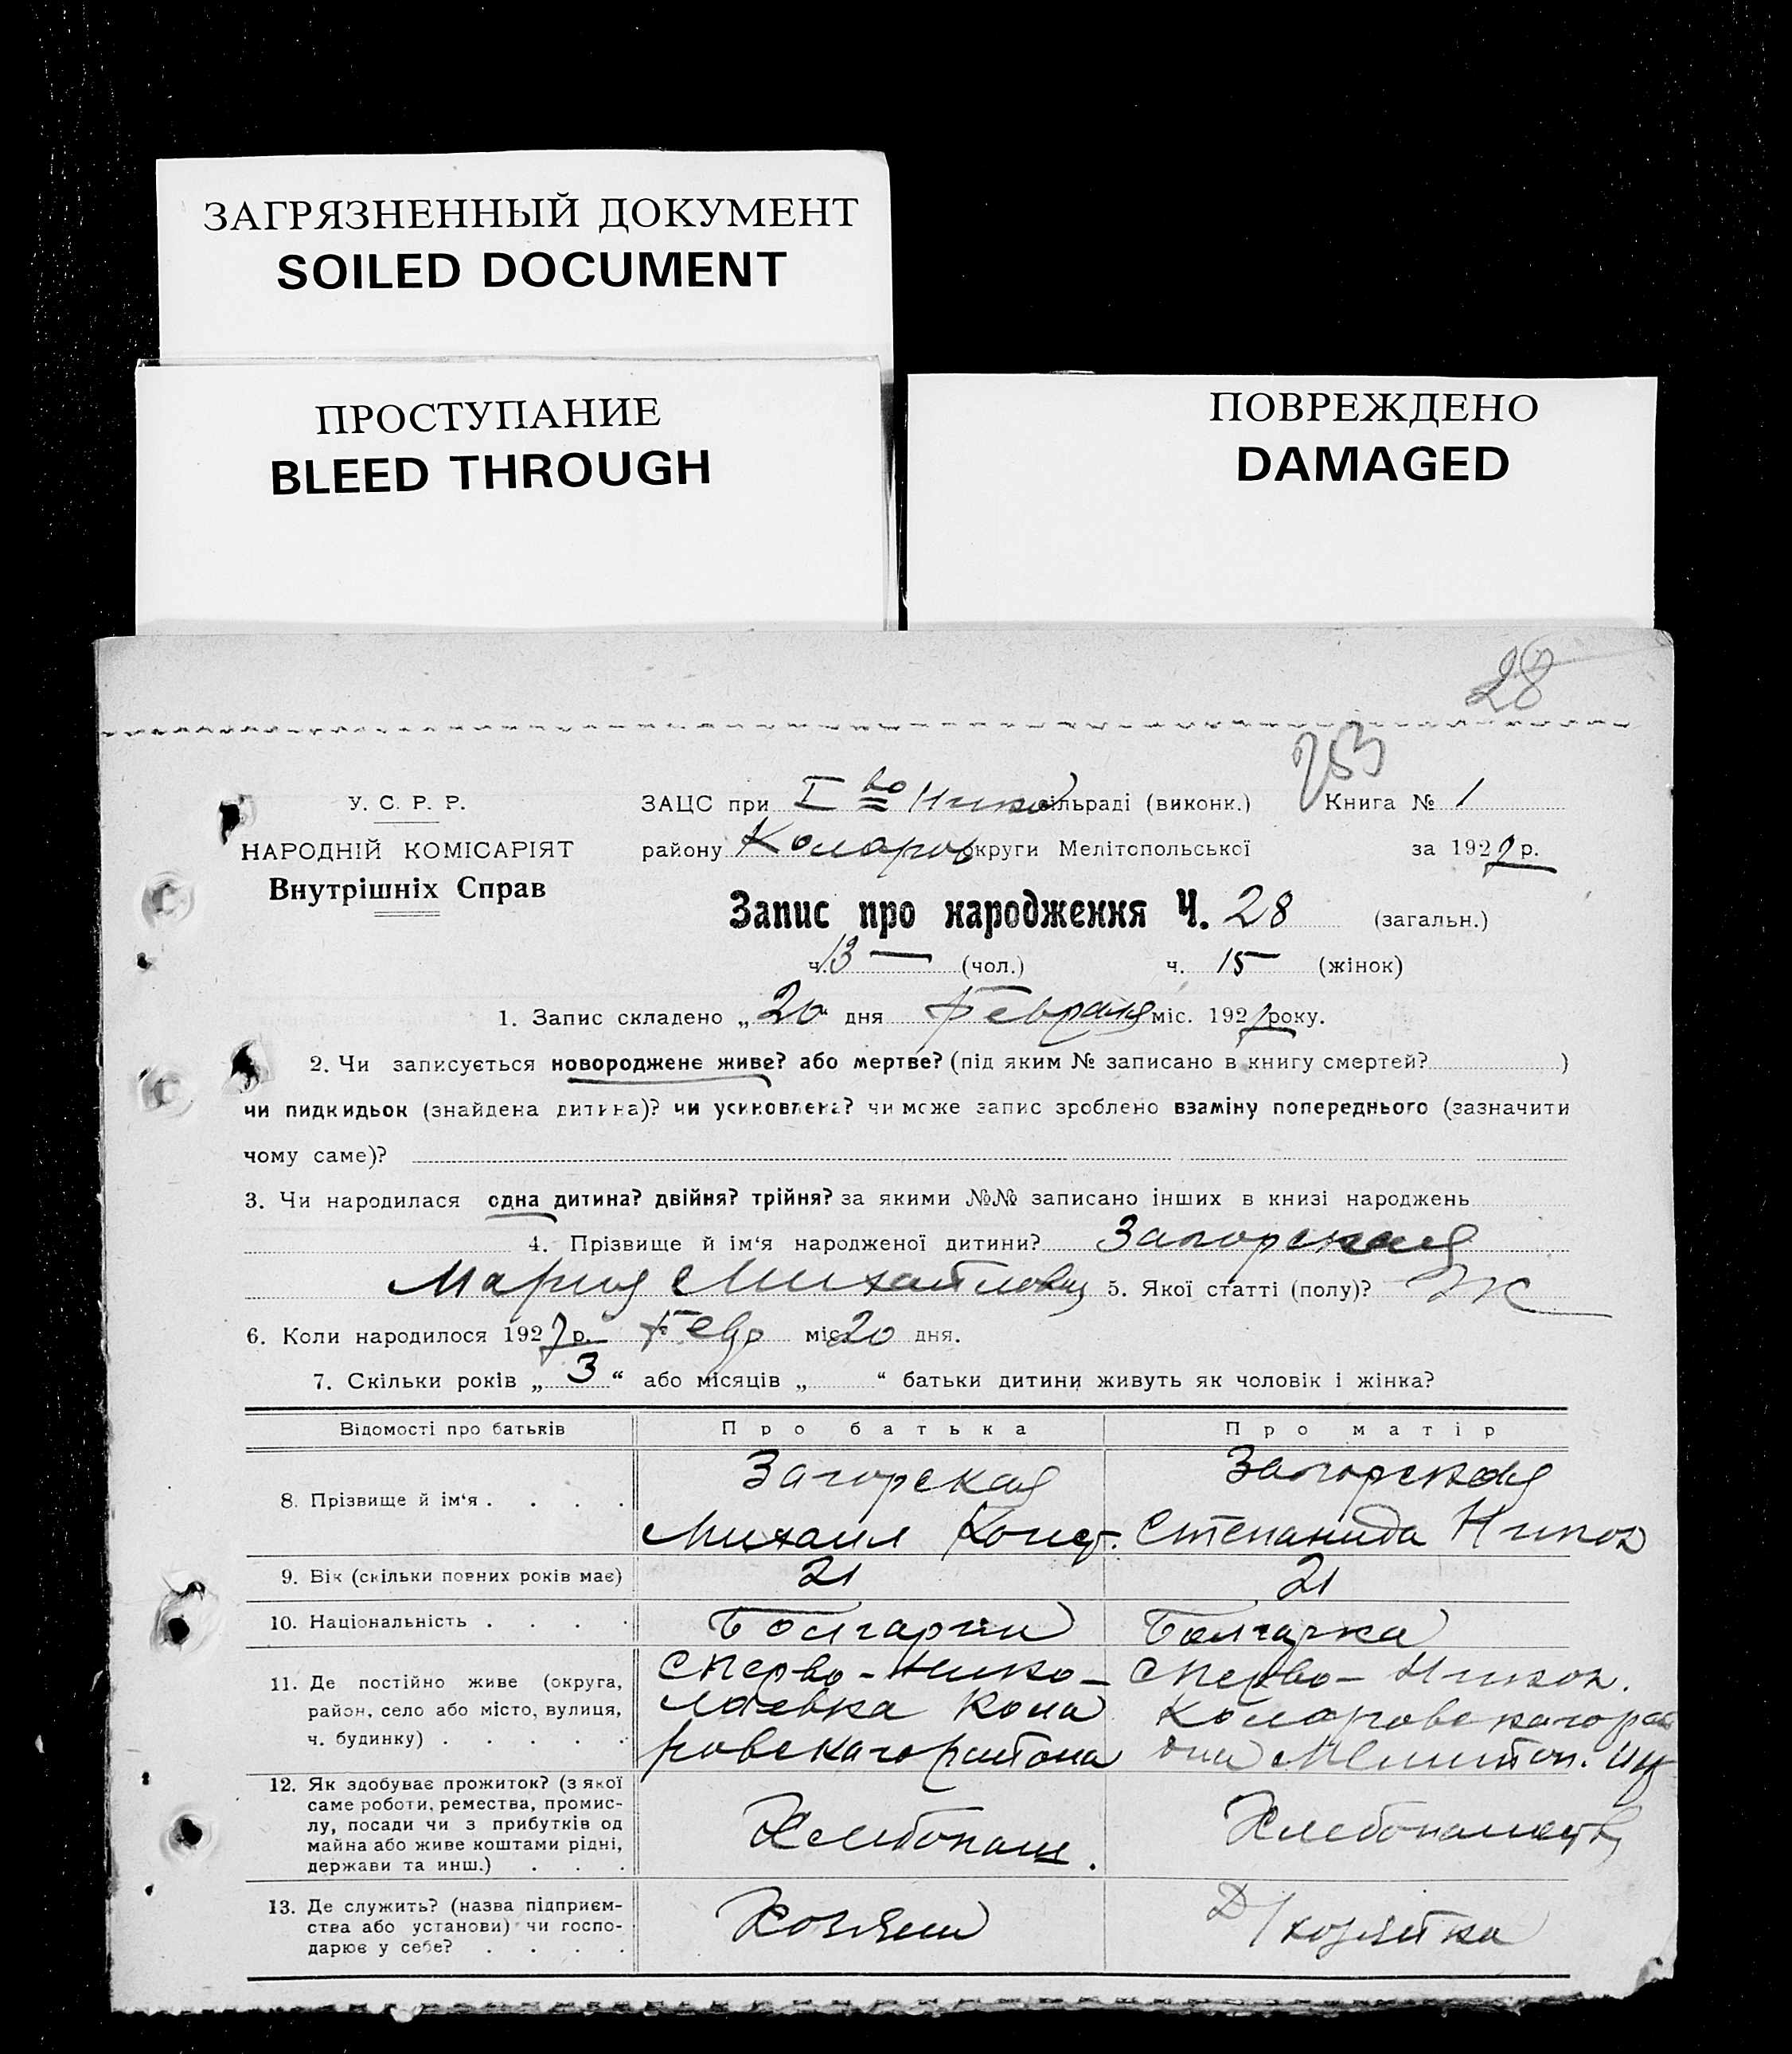 ЗАГРЯЗНЕННЫЙ ДОКУМЕНТ
SOILED DOCUMENT
ПРОСТУПАНИЕ
BLEED THROUGH
ПОВРЕЖДЕНО
DAMAGED
28
253
У. С. Р. Р.
НАРОДНІЙ КОМІСАРІЯТ
Внутрішніх Справ
ЗАЦС при I во Никол сільраді (виконк.) Книга № 1
району Коларов округи Мелітопольської за 1927 р.
Запис про народження Ч. 28 (загальн.)
ч. 13 — (чол.) ч. 15 — (жінок)
1. Запис складено „20“ дня Февраля міс. 1927 року.
2. Чи записується новороджене живе? або мертве? (під яким № записано в книгу смертей? )
чи пидкидьок (знайдена дитина)? чи усиновлена? чи може запис зроблено взаміну попереднього (зазначити
чому саме)?
3. Чи народилася одна дитина? двійня? трійня? за якими №№ записано інших в книзі народжень
4. Прізвище й ім‘я народженої дитини? Загорская
Мария Михайловн 5. Якої статті (полу)? Ж
6. Коли народилося 1927 р. Февр міс 20 дня.
7. Скільки років „ 3 “ або місяців „ “ батьки дитини живуть як чоловік і жінка?
Відомості про батьків Про батька Про матір
8. Прізвище й ім‘я . . . .
Загорская
Михаил Конст.
Загорская
Степанида Никол
9. Вік (скільки повних років має) 21 21
10. Національність . . . . Болгарин Болгарка
11. Де постійно живе (округа,
район, село або місто, вулиця,
ч. будинку) . . . . .
с Перво-Нико-
лаевка Кола
ровскагорайона
с Перво-Никол.
Коларовскагорай
она Мелитоп.
12. Як здобуває прожиток? (з якої
саме роботи, ремества, промис-
лу, посади чи з прибутків од
майна або живе коштами рідні,
держави та инш.) . . .
Хлебопаш.
Хлебопашеств
13. Де служить? (назва підприєм-
ства або установи) чи госпо-
дарює у себе? . . . .
Хозяин
Д/хозяйка